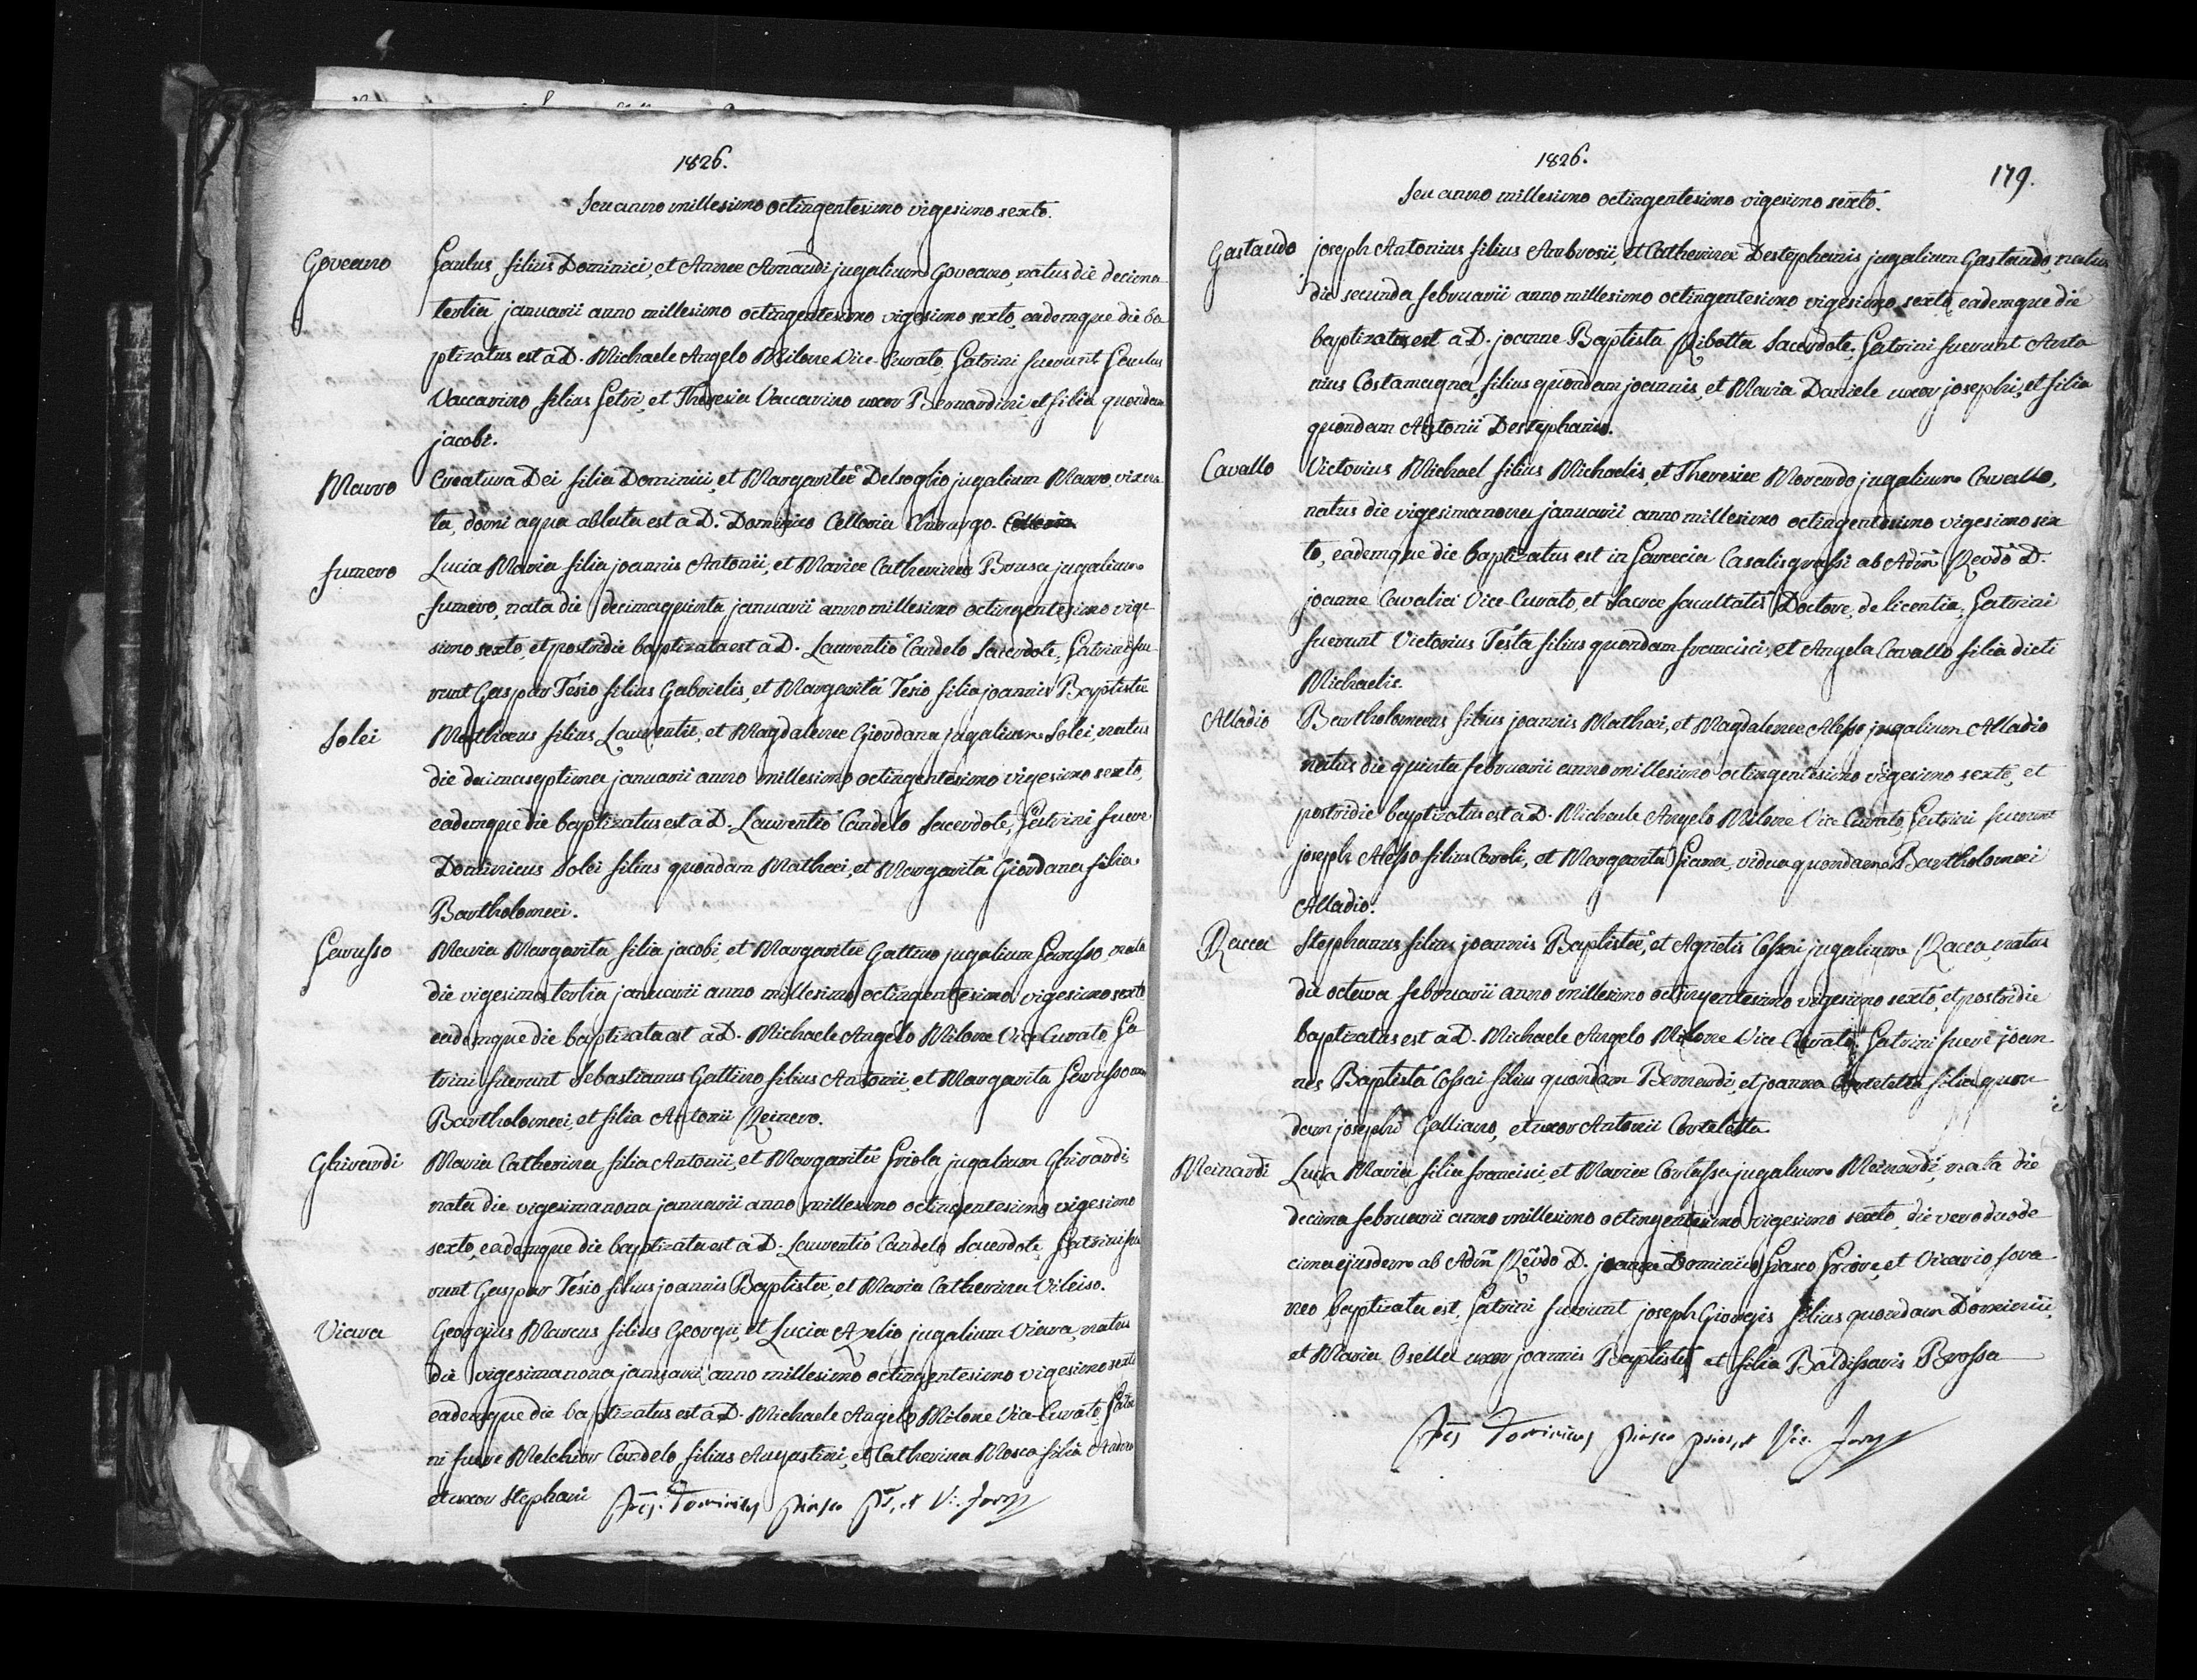 1826.
Seu anno millesimo octingentesimo vigesimo sexto.
Goveano
Paulus filius Dominici, et Annæ Arnaudi jugalium Goveano, natus die decima
tertia januarii anno millesimo octingentesimo vigesimo sexto, eademque die ba
ptizatus est a D. Michaele Angelo Milone Vice-Curato. Patrini fuerunt Paulus
Vaccarino filius Petri, et Theresia Vaccarino uxor Bernardini et filia quondam
jacobi.
Mauro
Creatura Dei filia Dominici, et Margaritæ Delsoglio jugalium Mauro, vix na
ta, domi aqua abluta est a D. Dominico Cellario Chirurgo.
fumero
Lucia Maria filia joannis Antonii, et Mariæ Catherinæ Brusa jugalium
fumero, nata die decimaquinta januarii anno millesimo octingentesimo vige
simo sexto, et postridie baptizata est a D. Laurentio Candelo Sacerdote, Patrini fue
runt Gaspar Tesio filius Gabrielis, et Margarita Tesio filia joannis Baptistæ
Solei
Mathæus filius Laurentii, et Magdalenæ Giordana jugalium Solei, natus
die decimaseptima januarii anno millesimo octingentesimo vigesimo sexto,
eademque die baptizatus est a D. Laurentio Candelo Sacerdote, Patrini fuere
Dominicus Solei filius quondam Mathæi, et Margarita Giordana filia
Bartholomæi.
Perusso
Maria Margarita filia jacobi, et Margaritæ Gattino jugalium Perusso, nata
die vigesimatertia januarii anno millesimo octingentesimo vigesimo sexto
eademque die baptizata est a D. Michaele Angelo Milone Vice Curato, Pa
trini fuerunt Sebastianus Gattino filius Antonii, et Margarita Perusso uxor
Bartholomæi, et filia Antonii Reinero.
Ghirardi
Maria Catherina filia Antonii, et Margaritæ Priola jugalium Ghirardi
nata die vigesimanona januarii anno millesimo octingentesimo vigesimo
sexto, eademque die baptizata est a D. Laurentio Candelo Sacerdote, Patrini fue
runt Gaspar Tesio filius joannis Baptistæ, et Maria Catherina Vileiso.
Viara
Georgius Marcus filius Georgii, et Lucia Axelio jugalium Viara, natus
die vigesimanona januarii anno millesimo octingentesimo vigesimo sexto
eademque die baptizatus est a D. Michaele Angelo Milone Vice-Curato, Patri
ni fuere Melchior Candelo filius Augustini, et Catherina Mosca filia Andreæ
et uxor Stephani
Dominicus Piasco Pr, et Vi. forn
1826.
179.
Seu anno millesimo octingentesimo vigesimo sexto.
Gastaudo
joseph Antonius filius Ambrosii, et Catherinæ Destephanis jugalium Gastaudo, natus
die secunda februarii anno millesimo octingentesimo vigesimo sexto, eademque die
baptizatus est a D. joanne Baptista Ribotta Sacerdote, Patrini fuerunt Anto
nius Costamagna filius quondam joannis, et Maria Daniele uxor josephi, et filia
quondam Antonii Destephanis.
Cavallo
Victorius Michael filius Michaelis, et Theresiæ Morando jugalium Cavallo,
natus die vigesimanona januarii anno millesimo octingentesimo vigesimo sex
to, eademque die baptizatus est in Parœcia Casalisgrassi ab Adm Revdo D.
joanne Cavalici Vice-Curato, et Sacræ facultatis Doctore, de licentia, Patrini
fuerunt Victorius Testa filius quondam francisci, et Angela Cavallo filia dicti
Michaelis.
Alladio
Bartholomæus filius joannis Mathæi, et Magdalenæ Alesso jugalium Alladio
natus die quinta februarii anno millesimo octingentesimo vigesimo sexto, et
postridie baptizatus est a D. Michaele Angelo Milone Vice Curato, Patrini fuerunt
joseph Alesso filius Caroli, et Margarita Piana, vidua quondam Bartholomæi
Alladio.
Racca
Stephanus filius joannis Baptistæ, et Agnetis Cossai jugalium Racca, natus
die octava februarii anno millesimo octingentesimo vigesimo sexto, et postridie
baptizatus est a D. Michaele Angelo Milone Vice Curato. Patrini fuere joan
nes Baptista Cossai filius quondam Bernardi, et joanna filia quon
dam josephi Galliano, et uxor Antonii Corteletta
Meinardi
Luca Maria filia francisci, et Mariæ Cortassa jugalium Meinardi, nata die
decima februarii anno millesimo octingentesimo vigesimo sexto, die vero duode
cima ejusdem ab Adm Revdo D. joanne Dominico Piasco Priore, et Vicario fora
neo baptizata est, Patrini fuerunt joseph Giorgis filius quondam Dominici,
et Maria Osella uxor joannis Baptistæ et filia Baldissaris Brossa
Dominicus Piasco Prior, et Vic. forn